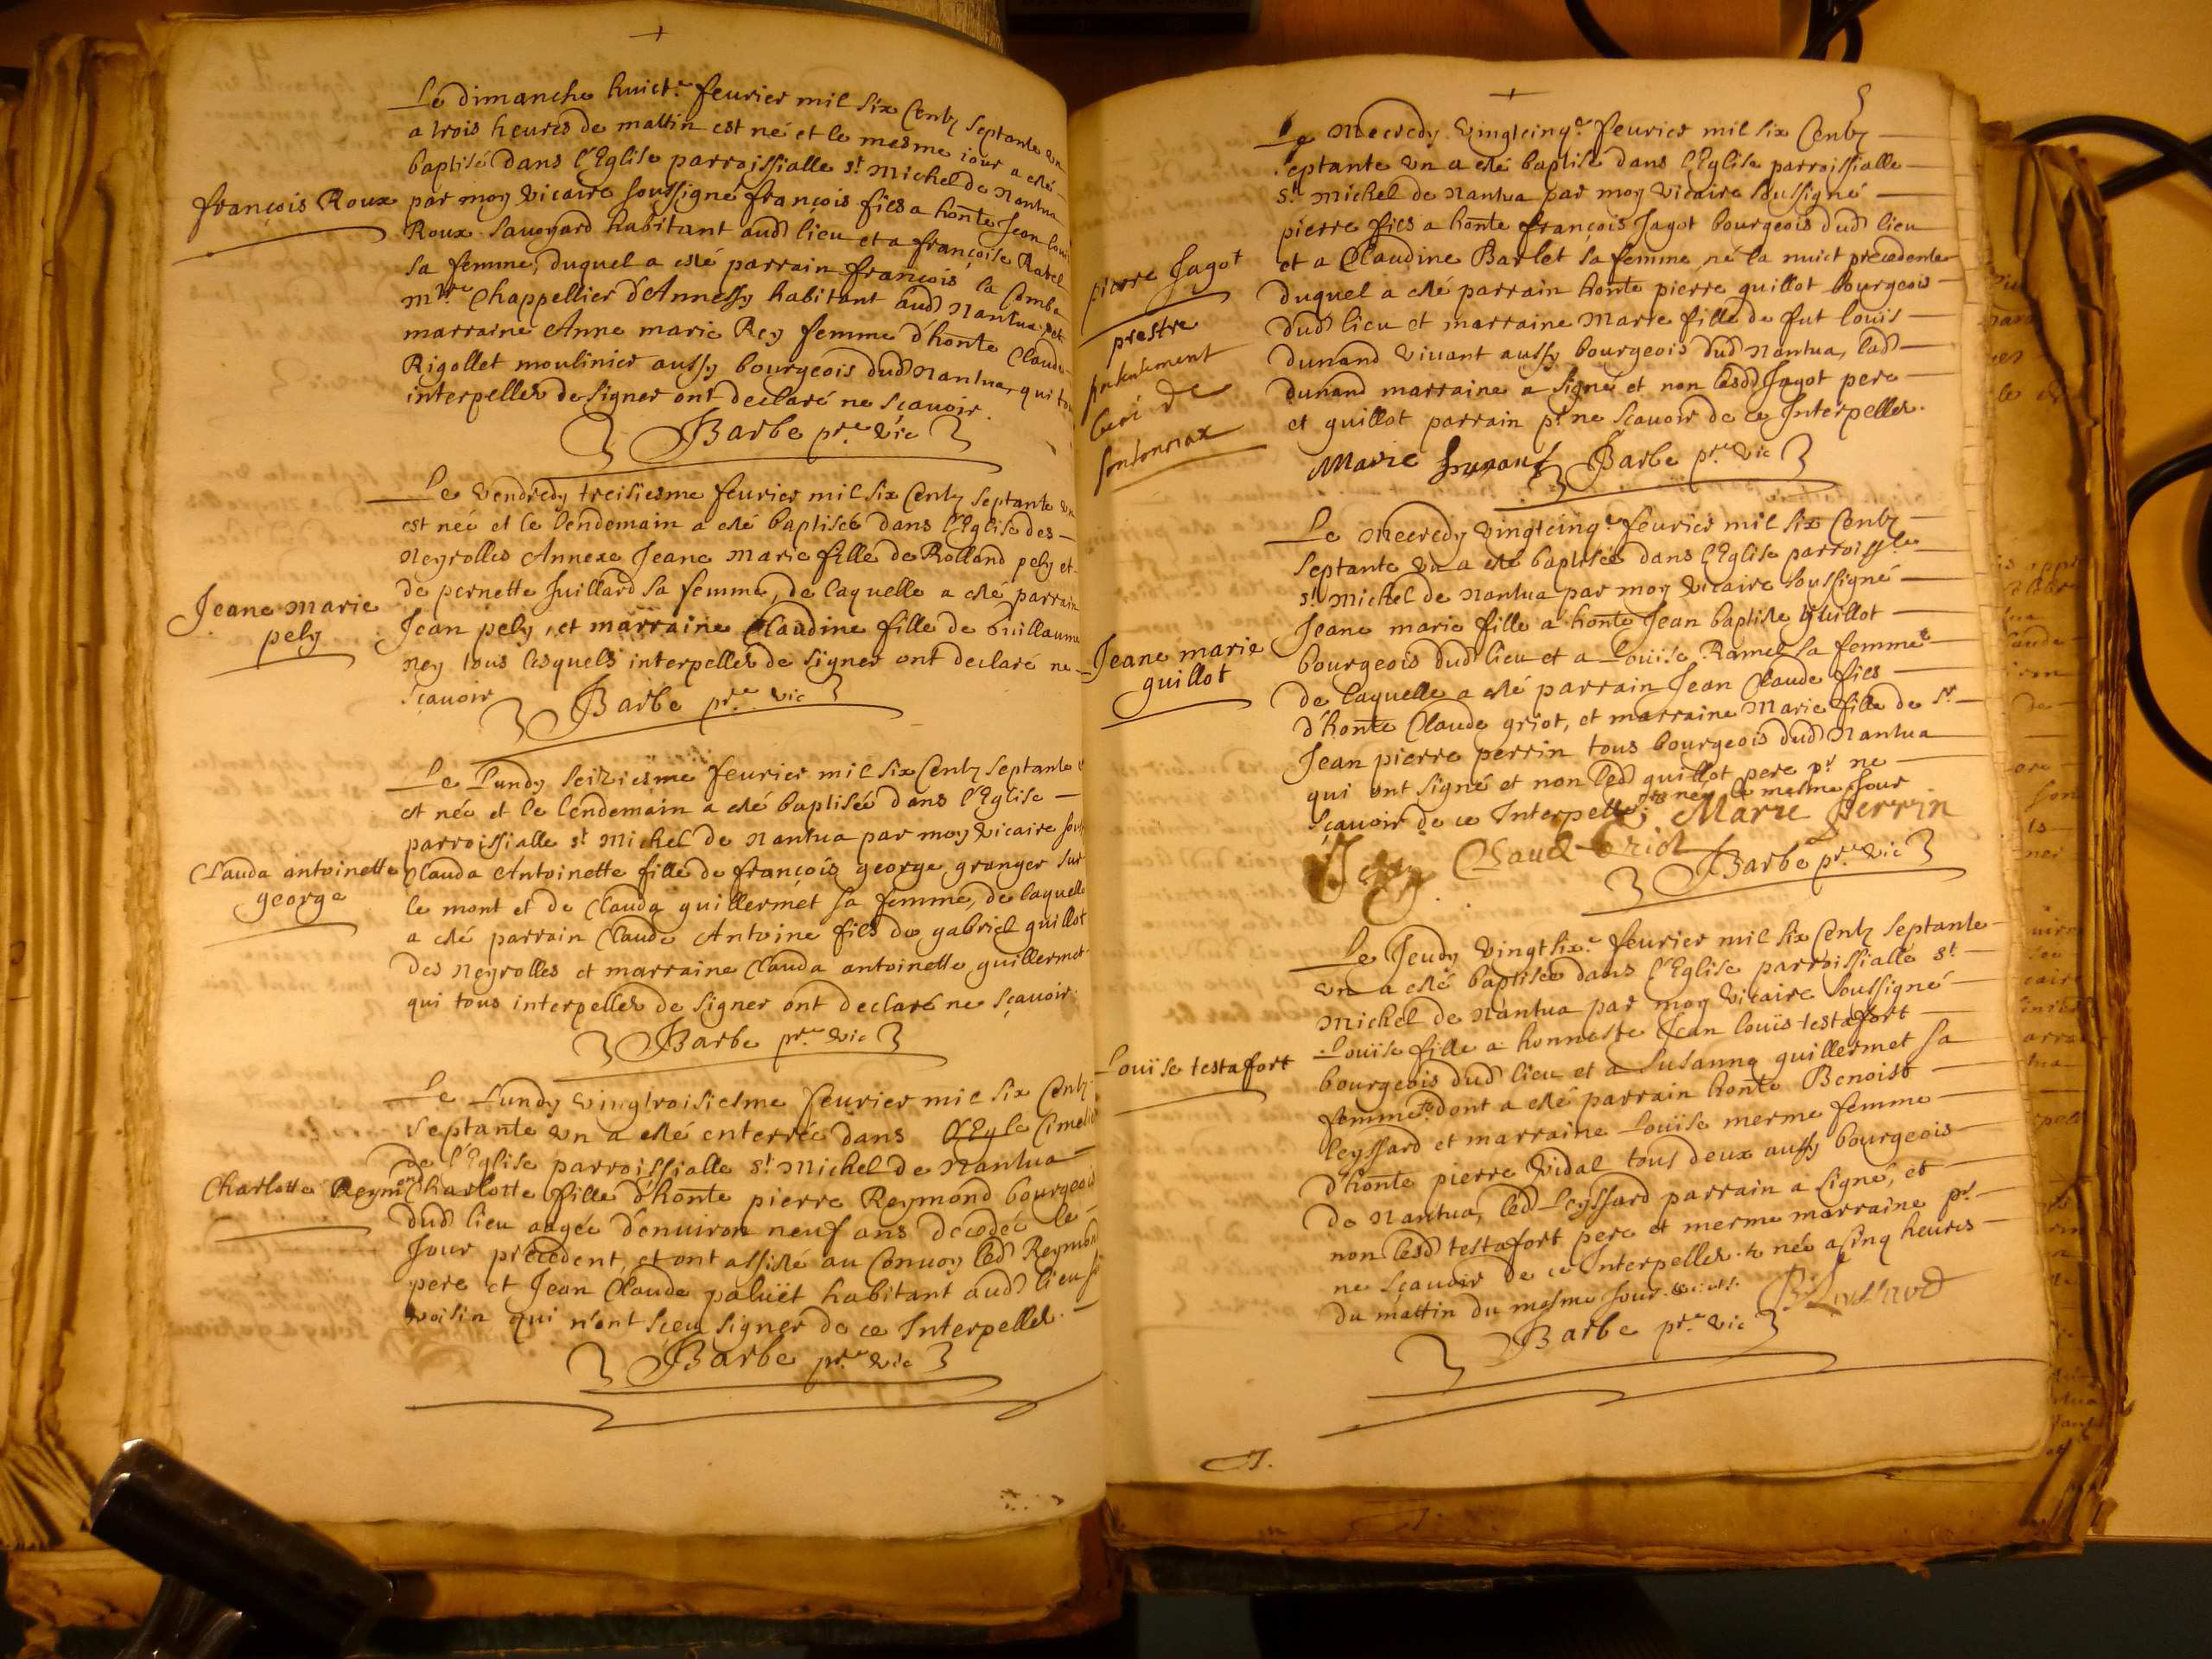 Le dimanche huict.e feurier mil six Centz septante un
a trois heures de mattin est né et le mesme iour a esté
baptisé dans l'Eglise parroissialle st Michel de Nantua
françois Roux
par moy vicaire soussigné françois fils a honte Jean louis
Roux Sauoyard habitant aud lieu et a françoise Ravel
sa femme, duquel a esté parrain françois la Combe
mtre Chappellier d'Annessy habitant aud Nantua, et
marraine Anne marie Rey femme d'honte Claude
Rigollet moulinier aussy bourgeois dud Nantua, qui tous
interpellez de signer ont declaré ne sçauoir.
Barbe pr.e vic
Le Vendredy treisiesme feurier mil six Centz septante un
est née et le lendemain a esté baptisée dans l'Eglise des
Neyrolles Annexe Jeane Marie fille de Rolland pely et
de pernette Juillard sa femme, de laquelle a esté parrain
Jeane marie
pely
Jean pely, et marraine Claudine fille de Guillaume
Ney tous lesquels interpellez de signer ont declaré ne
sçauoir
Barbe pr.e vic
Le Lundy seiziesme feurier mil six Centz septante
est née et le lendemain a esté baptisée dans l'Eglise
parroissialle st Michel de Nantua par moy vicaire
Clauda antoinette
george
Clauda Antoinette fille de françois george granger sur
le mont et de Clauda guillermet sa femme, de laquelle
a esté parrain Claude Antoine fils de gabriel guillot
des Neyrolles et marraine Clauda antoinette guillermet
qui tous interpellez de signer ont declaré ne sçauoir.
Barbe pr.e vic
Le Lundy vingtroisiesme feurier mil six Centz
septante un a esté enterrée dans
de l'Eglise parroissialle st Michel de Nantua
Charlotte Reymond
Charlotte fille d'honte pierre Reymond bourgeois
dud lieu aagée d'enuiron neuf ans decedée le
Jour precedent, et ont assisté au Conuoy led Reymond
pere et Jean Claude paluët habitant aud lieu
voisin qui n'ont sceu signer de ce Interpellez.
Barbe pr.e vic
5
Le Mecredy vingtcinq.e feurier mil six Centz
septante un a esté baptisé dans l'Eglise parroissialle
st Michel de Nantua par moy vicaire soussigné
pierre fils a honte françois Jagot bourgeois dud lieu
et a Claudine Barlet sa femme, né la nuict precedente
pierre Jagot
prestre
presentement
curé de
duquel a esté parrain honte pierre guillot bourgeois
dud lieu et marraine Marie fille de fut louis
dunand viuant aussy bourgeois dud Nantua, lad
dunand marraine a signé et non lesdd Jagot pere
et guillot parrain pr ne sçauoir de ce Interpellez.
Marie Dunand
Barbe pr.e vic
Le Mecredy vingtcinq.e feurier mil six Centz
septante un a esté baptisée dans l'Eglise parroiss.le
st Michel de Nantua par moy vicaire soussigné
Jeane marie
guillot
Jeane marie fille a honte Jean baptiste guillot
bourgeois dud lieu et a Louise Ramel sa femme
de laquelle a esté parrain Jean Claude fils
d'honte Claude griot, et marraine Marie fille de sr
Jean pierre perrin tous bourgeois dud Nantua
qui ont signé et non led guillot pere pr ne
sçauoir de ce Interpellé née le mesme Jour
Marie Perrin
Barbe pr.e vic
Le Jeudy vingtsix.e feurier mil six Centz septante
un a esté baptisée dans l'Eglise parroissialle st
Michel de Nantua par moy vicaire soussigné
Louise testafort
Louïse fille a honneste Jean louïs testafort
bourgeois dud lieu et a Susanne guillermet sa
femme dont a esté parrain honte Benoist
leyssard et marraine Louïse merme femme
d'honte pierre Vidal tous deux aussy bourgeois
de Nantua, led Leyssard parrain a signé, et
non lesd testafort pere et merme marraine pr
ne sçauoir de ce Interpellez. née a sinq heures
du mattin du mesme Jour.
Barbe pr.e vic